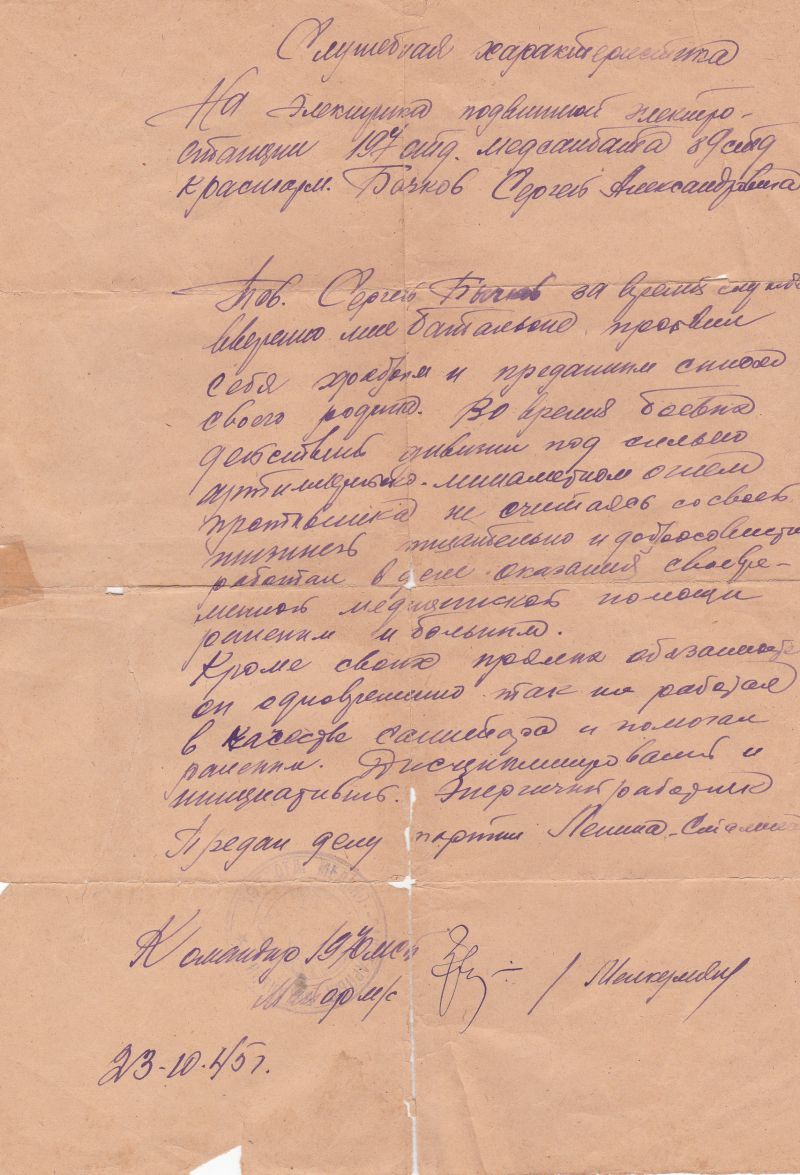 Служебная характеристика
На электрика подвижной электро-
станции 197 отд. медсанбата 89 стд
красноарм. Бычков Сергей Александровича
Тов. Сергей Бычков за время службы
вверенно мне батальоне проявил
себя храбрым и преданным сыном
своего родины. Во время боевых
действий дивизии под сильно
артиллерийско-минаметном огнем
противника не считаясь со своей
жизнью тщательно и добросовестно
работал в деле оказания своевре-
менной медицинской помощи
раненым и больным.
Кроме своих прямых обязанностей
он одновременно так же работал
в качестве санитара и помогал
раненым. Дисциплинированный и
инициативный. Энергичный работник
Предан делу партии Ленина-Сталина
Командир 197 мсб
Майор м/с / Мелкумян
23-10-45г.